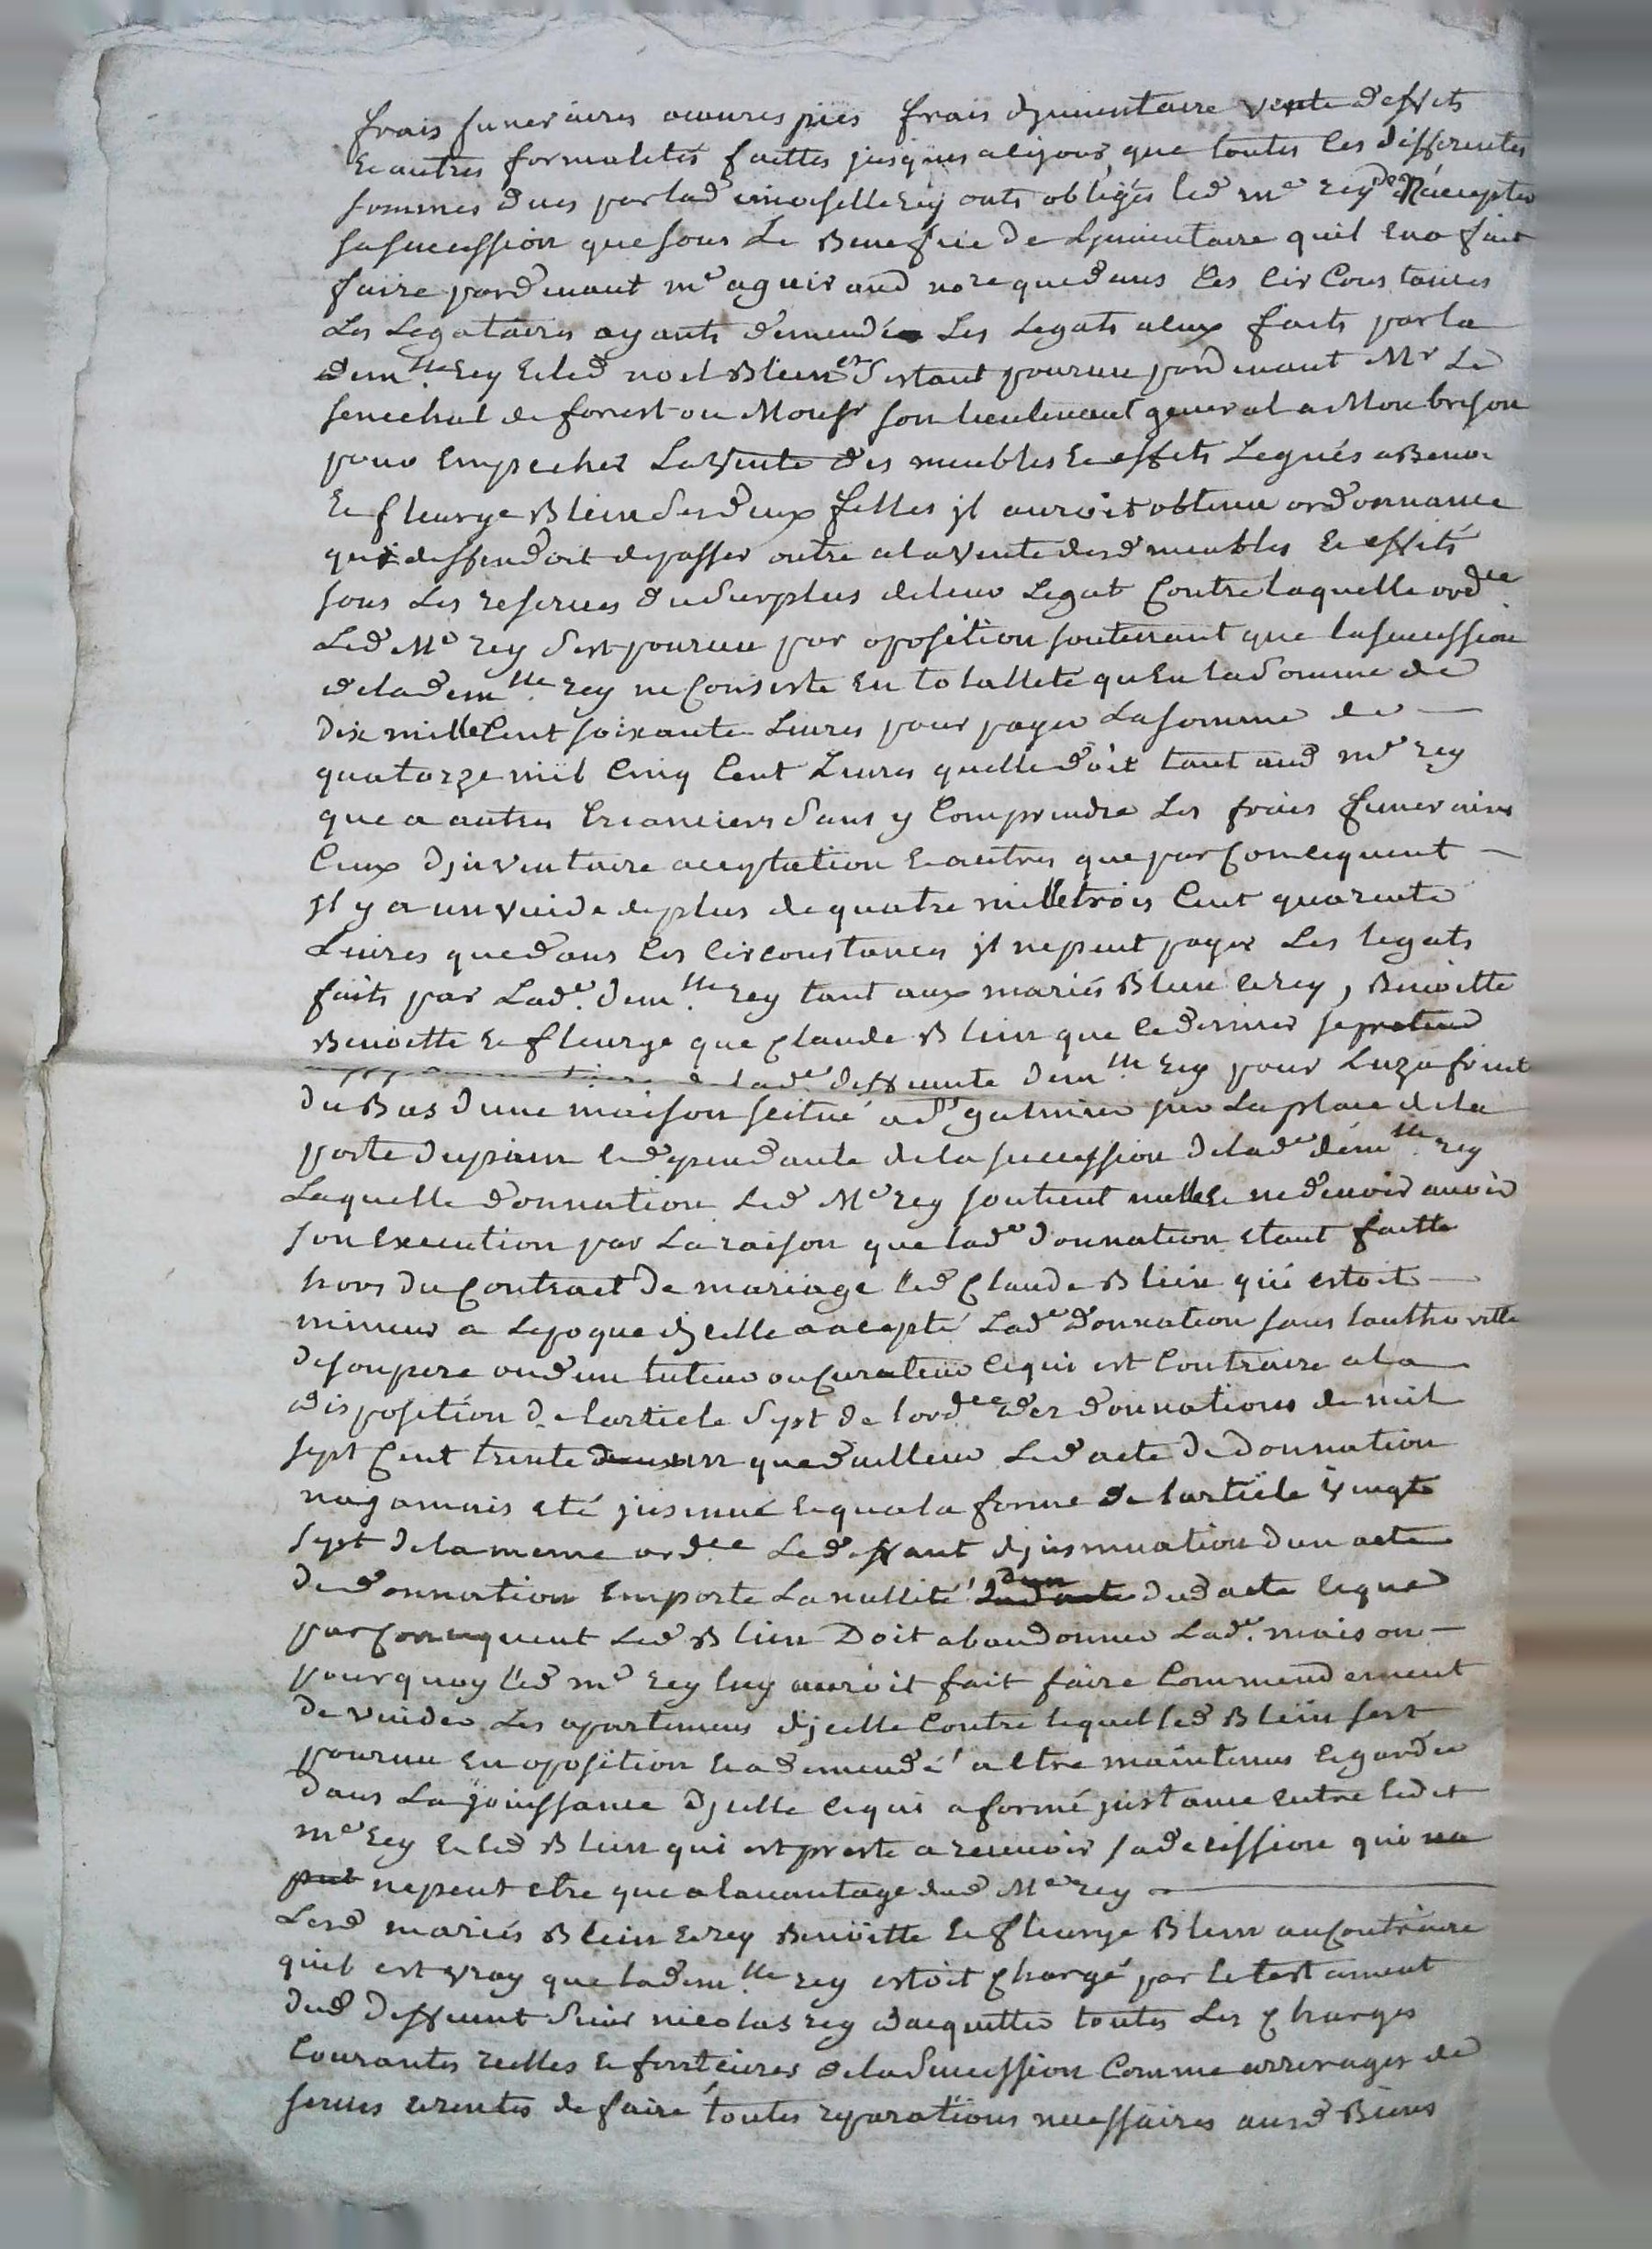 frais funeraires œuvres pies frais djnventaire vente d'effets
Et autres formalités faittes jusques a cejour, que toutes ces differentes
sommes dues par lad emoiselle rey onts obligés led me rey de N'accepter
sa succession que sous Le Benefice de Ljnventaire quil En a fait
faire pardevant me aguiraud nore que dans Ces Circonstances
Les Legataires ayants demendé Les Legats a Eux faits par la
demlle Rey Et led noel Blein et sestant pourvu pardevant Mr Le
senechal de forest ou Monsr son lieutenant general a Montbrison
pour Empecher La Vente des meubles Et effets Legués a Benoi
Et fleurye Blein Ses deux filles jl auroit obtenu ordonnance
qui deffendoit de passer outre a la vente desd meubles Et effets
sous Les reserves du Surplus de leur Legat Contre laquelle ordce
Led Me rey s'est pourvu par oposition soutenant que la succession
de la demlle rey ne Consiste En totallité qu'En la Somme de
Dix mille Cent soixante Livres pour payer La somme de —
quatorze mil Cinq Cent Livres quelle doit tant aud me rey
que a autres Creanciers Sans y Comprendre Les frais funeraires
Ceux djnventaire acceptation Et autres que par Concequent —
jl y a un vuide de plus de quatre mille trois Cent quarente
Livres que dans Ces Circonstances jl ne peut payer Les legats
faits par Lade. demlle rey tant aux mariés Blein Et rey, Benoitte
Benoitte Et fleurye que Claude Blein que Ce dernier se pretend
de lade deffunte demlle Rey pour Luzufruit
du Bas d'une maison scitué a St galmier sur La place de la
porte dupiam Et dependante de la succession de lade demlle rey
Laquelle donnation Led Me rey soutient nulle Et ne devoir avoir
son Execution par La raison que lade donnation Etant faitte
hors du Contract de mariage led Claude Blein qui estoit —
mineur a Lepoque djcelle a accepté Lade donnation sans lauthorité
de son pere ou d'un tuteur ou Curateur Ce qui est Contraire a la
disposition de larticle Sept de lordce des donnations de mil
sept Cent trente un que dailleur Led acte de donnation
na jamais eté jnsinué Et qu a la forme de larticle Vingt
sept de la meme ordce Le deffaut djnsinuation d'un acte
de donnation Emporte La nullité dud acte Et que
par Concequent Led Blein Doit abandonner Lade. maison —
pourquoy led me rey luy auroit fait faire Commendement
de vuider Les apartemens djcelle Contre lequel led Blein sest
pourvu En oposition Et a demendé a Etre maintenus Et gardée
dans La jouissance djcelle Ce qui a formé jnstance Entre ledit
me Rey Et led Blein qui est preste a recevoir sa decission qui na
put ne peut etre que a lavantage dud Me rey —
Lesd mariés Blein Et rey Benoitte Et fleurye Blein au Contraire
quil est vray que lademlle rey estoit Chargé par le testament
dud deffunt Sieur nicolas rey dacquitter toutes Les Charges
Courantes reelles Et fonctieres de la Succession Comme arrerages de
servis Et rentes de faire toutes reparations necessaires ausd Biens